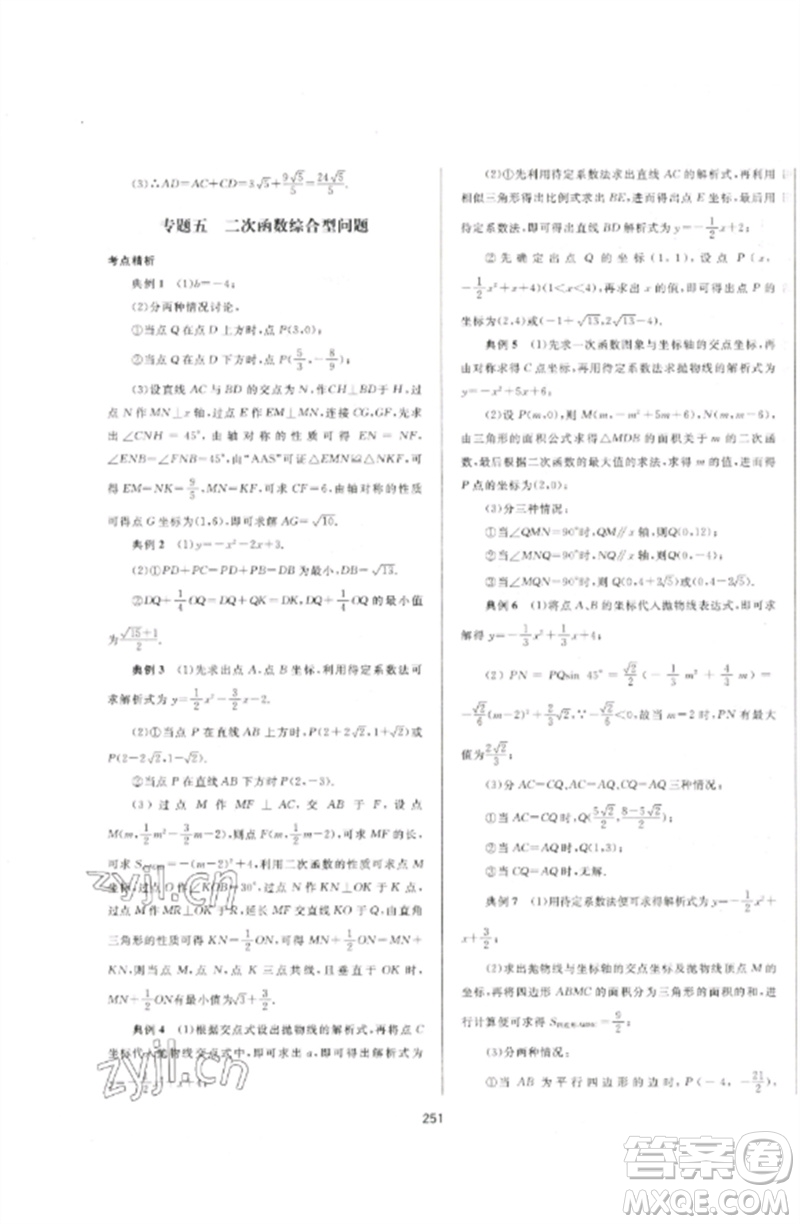 (3)∴AD=AC+CD=3√5+9√5/5=24√5/5.
专题五 二次函数综合型问题
考点精析
典例1 (1)b=-4;
(2)分两种情况讨论,
①当点Q在点D上方时,点P(3,0);
②当点Q在点D下方时,点P(5/3,-8/9);
(3)设直线AC与BD的交点为N,作CH⊥BD于H,过
点M作MN⊥x轴,过点M作ME⊥BD于E,连接CG,GF,先求
出∠CNH=45°,由轴对称的性质可得EN=NF,
∠ENB=∠FNB=45°,由“AAS”可证△EMN≌△KMN,可
得EM=NK=9/5,MN=KF,可求CF=6,由轴对称的性质
可得点G坐标为(1,6),即可求解AG=√10.
典例2 (1)y=-x²-2x+3.
(2)①PD+PC=PD+PB=DB为最小,DB=√13.
②DQ+1/4OQ=DQ+QK=DK,DQ+1/4OQ的最小值
为(√15+1)/2.
典例3 (1)先求出点A,点B坐标,利用待定系数法可
求解析式为y=1/2x²-3/2x-2.
(2)①当点P在直线AB上方时P(2+2√2,1+√2)或
P(2-2√2,1-√2).
②当点P在直线AB下方时P(2,-3).
(3)过点M作MF⊥AC,交AB于F,设点
M(m,1/2m²-3/2m-2),则点F(m,1/2m-2),可求MF的长,
可求S△MAB=-(m-2)²+4,利用二次函数的性质可求点M
坐标,过点O作∠KOB=30°,过点N作NK⊥OK于K点,
过点M作MR⊥OK于R,延长MF交直线KO于Q,由直角
三角形的性质可得KN=1/2ON,可得MN+1/2ON=MN+
KN,则当点M,点N,点K三点共线,且垂直于OK时,
MN+1/2ON有最小值为√3+3/2.
典例4 (1)根据交点式设出抛物线的解析式,再将点C
坐标代入抛物线交点式中,即可求出a,即可得出解析式为
y=-1/2x²+x+4;
(2)①先利用待定系数法求出直线AC的解析式,再利用
相似三角形得出比例式求出BE,进而得出点E坐标,最后用
待定系数法,即可得出直线BD解析式为y=-1/2x+2;
②先确定出点Q的坐标(1,1),设点P(x,-
1/2x²+x+4)(1<x<4),再求出x的值,即可得出点P的
坐标为(2,4)或(-1+√13,2√13-5).
典例5 (1)先求一次函数图象与坐标轴的交点坐标,再
由对称求得C点坐标,再用待定系数法求得抛物线的解析式为
y=-x²+5x+6;
(2)设P(m,0),则M(m,-m²+5m+6),N(m,-m+6),
由三角形的面积公式求得△MDB的面积关于m的二次函
数,最后根据二次函数的最大值的求法,求得m的值,进而得
P点的坐标为(2,0);
(3)分三种情况:
①当∠QMN=90°时,QM∥x轴,则Q(0,12);
②当∠MNQ=90°时,NQ∥x轴,则Q(0,4);
③当∠MQN=90°时,Q(0,8+2√3)或Q(0,8-2√3).
典例6 (1)将点A,B的坐标代入抛物线表达式,即可求
解得y=-1/3x²+1/3x+4;
(2)PN=PQsin 45°=√2/2(-1/3m²+4/3m)=
-√2/6(m-2)²+2/3√2,∵-√2/6<0,故当m=2时,PN有最大
值为2√2/3;
(3)分AC=CQ,AC=AQ,CQ=AQ三种情况:
①当AC=CQ时,Q(5√2/2,(8-5√2)/2);
②当AC=AQ时,Q(1,3);
③当CQ=AQ时,无解.
典例7 (1)用待定系数法便可求得解析式为y=-1/2x²+
x+3/2;
(2)求出抛物线与坐标轴的交点坐标及抛物线顶点M的
坐标,再将四边形ABMC的面积分为三角形的面积的和,进
行计算便可求得S四边形ABMC=9/2;
(3)分两种情况:
①当AB为平行四边形的边时,P(-4,-21/2),
251
zyjl.cn
zyjl.cn
答案圈
MXQE.COM